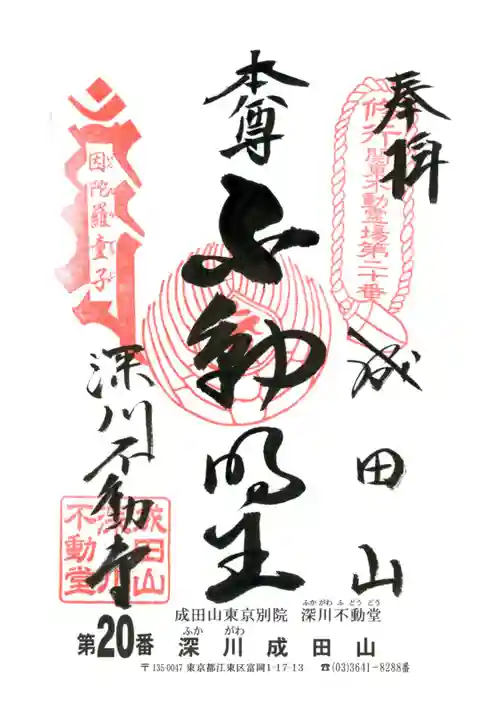 奉拝
修行
関東不動霊場第二十番
成田山
本尊
不動明王
因陀羅童子
深川不動堂
成田山
深川
不動堂
成田山東京別院 深川不動堂
ふかがわふどうどう
第20番 深川成田山
ふか がわ
〒135-0047 東京都江東区富岡1-17-13 ☎(03)3641-8288番